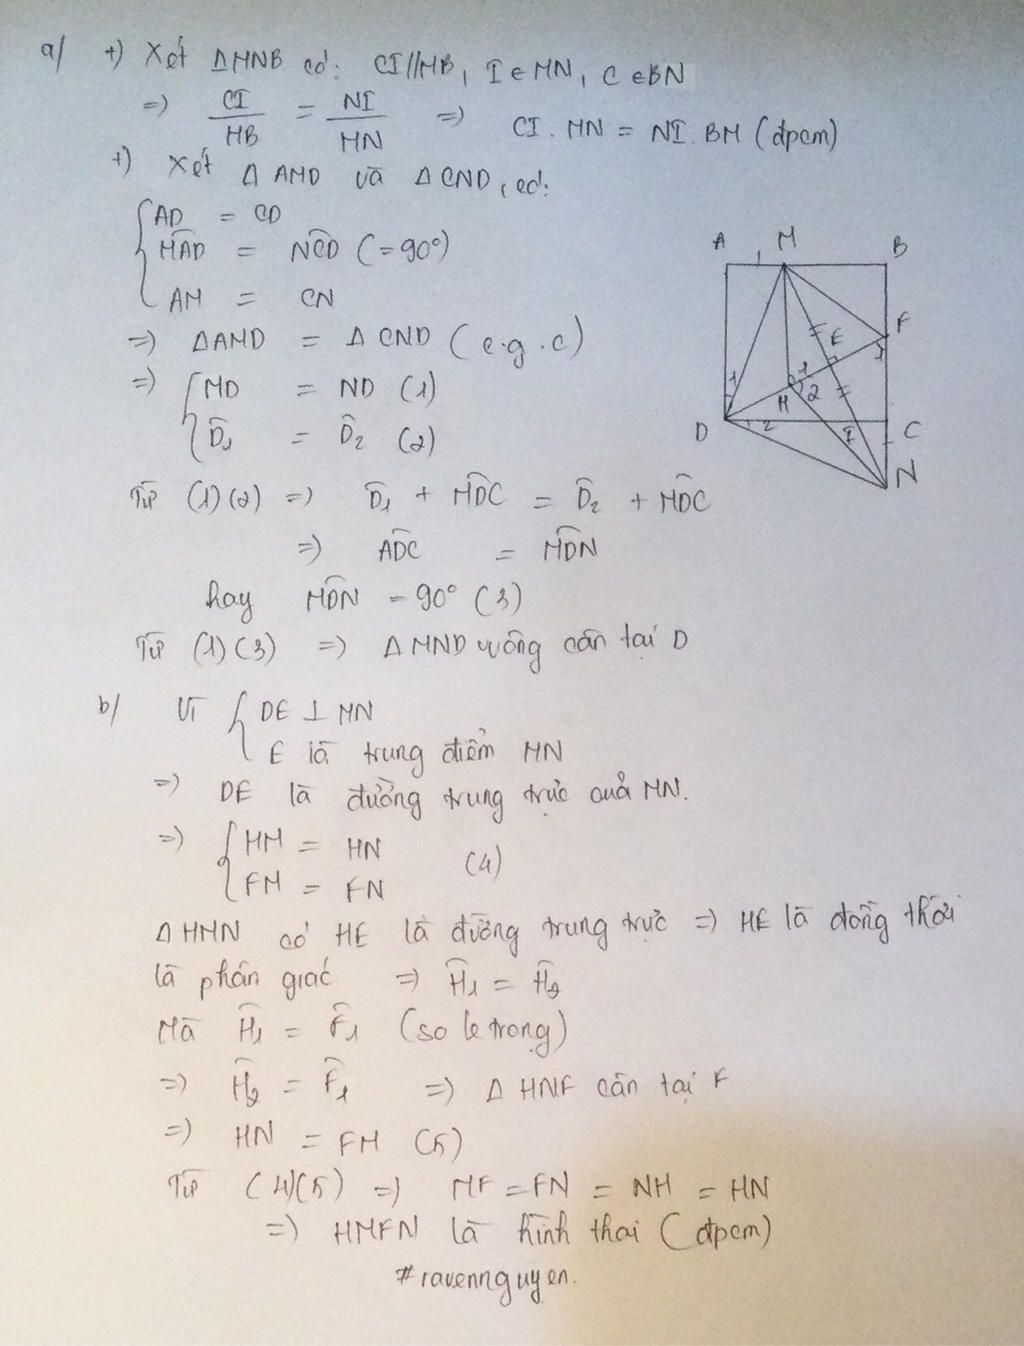 a/ +) Xét ΔMNB có: CI//MB, I ∈ MN, C ∈ BN
=) CI/MB = NI/MN =) CI . MN = NI . BM (đpcm)
+) Xét Δ AMD và Δ CND, có:
AD = CD
MAD = NCD (= 90°)
AM = CN
=) ΔAMD = Δ CND (c.g.c)
=) MD = ND (1)
D̂1 = D̂2 (2)
Từ (1)(2) =) D̂1 + MDC = D̂2 + MDC
=) ADC = MDN
hay MDN = 90° (3)
Từ (1)(3) =) Δ MND vuông cân tại D
b/ Vì DE ⊥ MN
E là trung điểm MN
=) DE là đường trung trực của MN.
=) HM = HN
FM = FN (4)
Δ HMN có HE là đường trung trực =) HE là đồng thời
là phân giác =) Ĥ1 = Ĥ2
Mà Ĥ1 = F̂1 (so le trong)
=) Ĥ2 = F̂1 =) Δ HNF cân tại F
=) HN = FM (5)
Từ (4)(5) =) MF = FN = NH = HN
=) HMFN là hình thoi (đpcm)
#ravennguyen.
A M B
F
E
1
1
1
H 2
D 2 I C
N